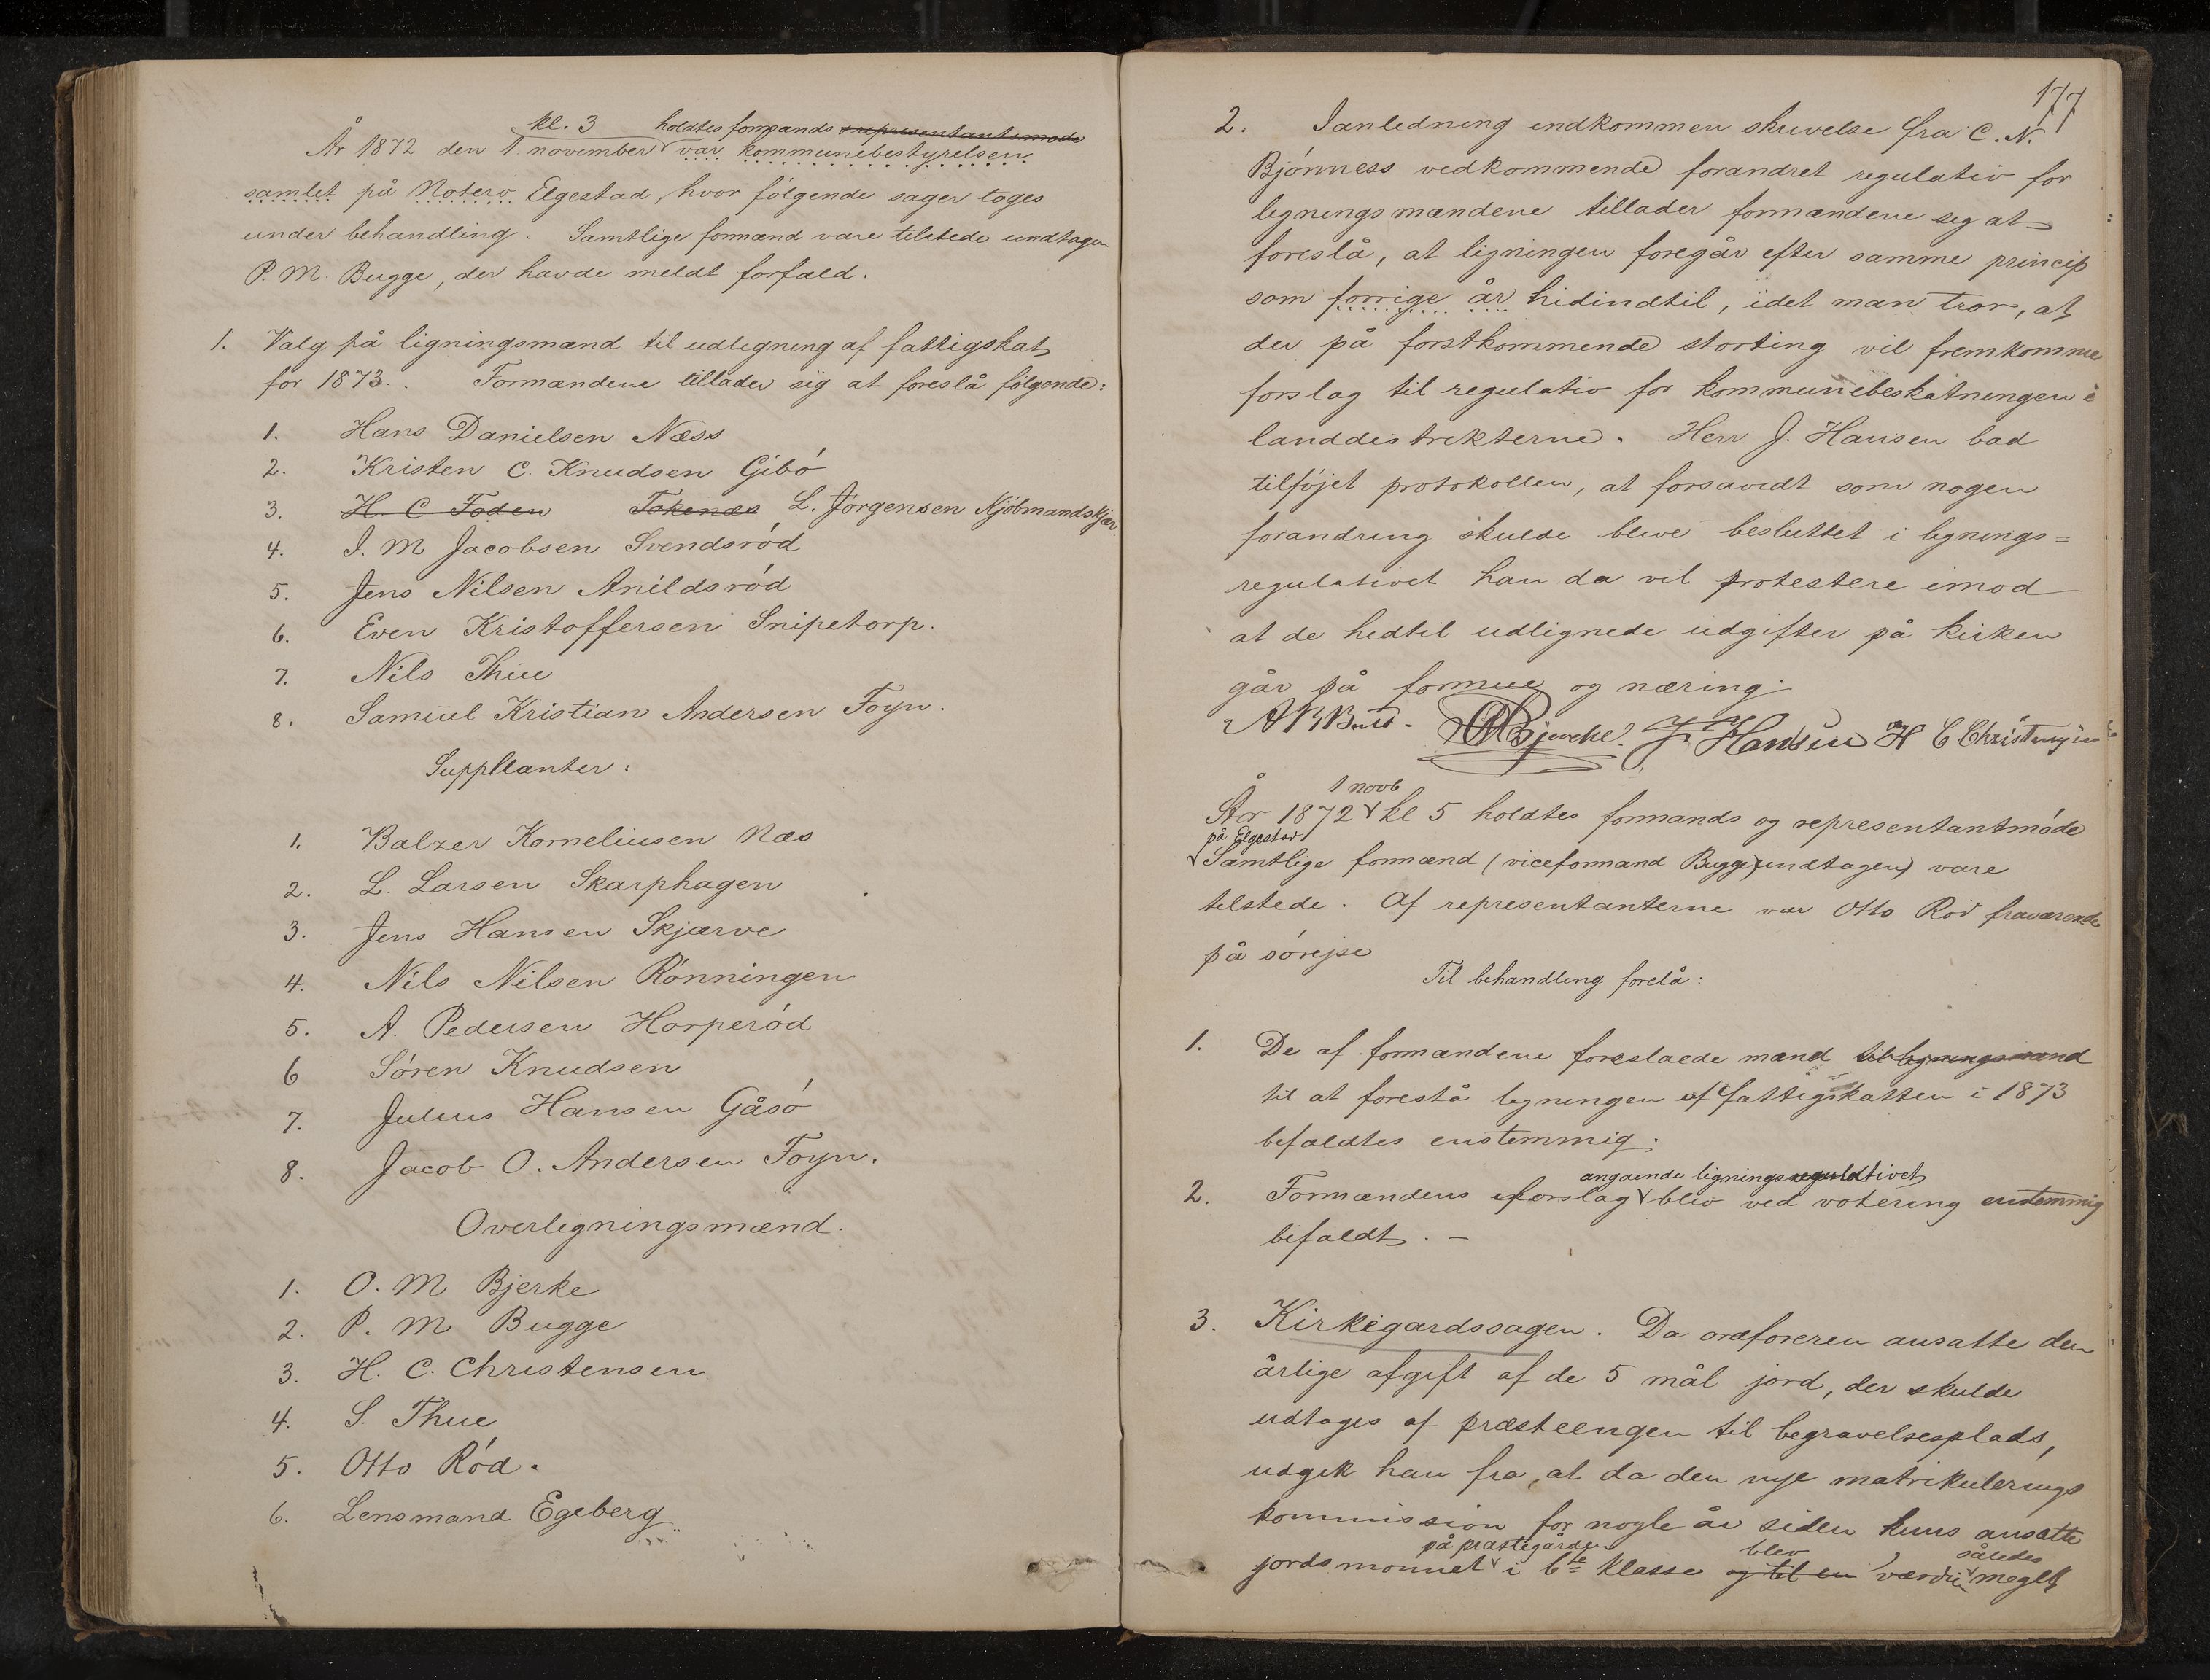 kl. 3 holdtes formands srepresentantsmøde
År 1872 den 1. november var kommunebestyrelsen
samlet på Notero Elgestad, hvor følgende sager toges
under behandling. Samtlige formænd vare tilstede undtagen
P. M. Bugge, der havde meldt forfald.
1. Valg på ligningsmænd til udligning af fattigskat
for 1873. Formændene tillader sig at foreslå følgende:
1. Hans Danielsen Næss
2. Kristen C. Knudsen Gibó
3. H. C Foden Tokenæs L. Jørgensen Kjöbmandskjær
4. I. M Jacobsen Svendsród
5. Jens Nilsen Anildsród
6. Even Kristoffersen Snipetorp.
7. Nils Thue
8. Samuel Kristian Andersen Foyn.
Suppleanter:
1. Balzer Korneliusen Næs
2. L. Larsen Skarphagen
3. Jens Hansen Skjærve
4. Nils Nilsen Rónningen
5. A. Pedersen Horperód
6 Sóren Knudsen
7. Julius Hansen Gåsó
8. Jacob O. Andersen Foyn.
Overligningsmænd.
1. O. M Bjerke
2. P. M Bugge
3. H. C. Christensen
4. S. Thue
5. Otto Ród.
6. Lensmand Egeberg
177
2. I anledning indkommen skrivelse fra C. N.
Bjónness vedkommende forandret regulativ for
ligningsmændene tillader formændene sig at
foreslå, at ligningen foregår efter samme princip
som forrige år hidindtil, idet man tror, at
der på forstkommende storting vil fremkomme
forslag til regulativ for kommunebeskatningen i
landdistrikterne. Herr J. Hansen bad
tilfójet protokollen, at forsavidt som nogen
forandring skulde blive besluttet i lignings=
regulativet han da vil protestere imod
at de hidtil udlignede udgifter på kirken
går på formue og næring.
OMBjercke. J Hansen H C Christensen
1 novb
År 1872 kl 5 holdtes formands og representantmóde
på Elgestad
Samtlige formænd (viceformand Bugge undtagen) vare
tilstede. Af representanterne var Otto Ród fraværende
på sóreise
Til behandling forelå:
1. De af formændene foreslaede mænd til ligningsmænd
til at forestå ligningen af fattigskatten i 1873
bifaldtes enstemmig.
angaende ligningsregulativet
2. Formændens forslag blev ved votering enstemmig
bifaldt. –
3. Kirkegardssagen. Da ordforeren ansatte den
årlige afgift af de 5 mål jord, der skulde
udtages af præsteengen til begravelsesplads,
udgik han fra, at da den nye matrikulerings
kommission for nogle år siden kuns ansatte
på præstegården blev således
jordsmonnet i 6te klasse og til en værdien meget